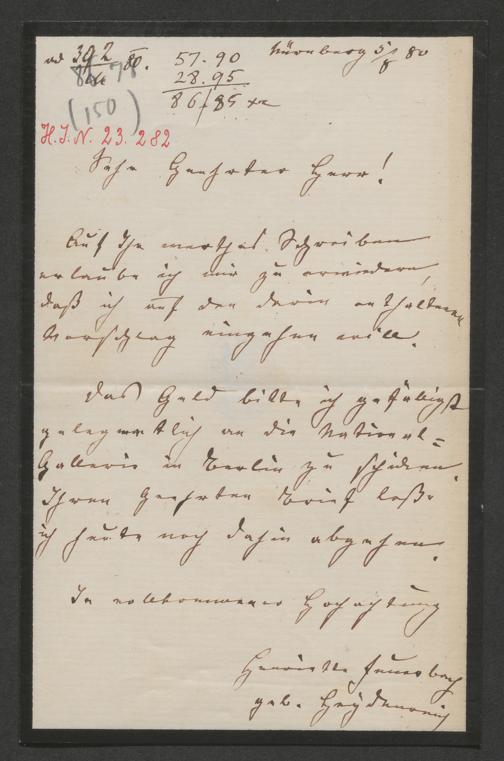 ad 392/80.
57.90
Nürnberg 5/8 80
28.95
(150)
86.85
H.I.N. 23.282
Sehr Geehrter Herr!
Auf Ihr werthes Schreiben
erlaube ich mir zu erwiedern,
daß ich auf den darin enthaltenen
Vorschlag eingehen will.
Das Geld bitte ich gefälligst
gelegentlich an die National-
Gallerie in Berlin zu schicken.
Ihren Geehrten Brief lasse
ich heute noch dahin abgehen.
In vollkommener Hochachtung
Henriette Feuerbach
geb. Heydenreich